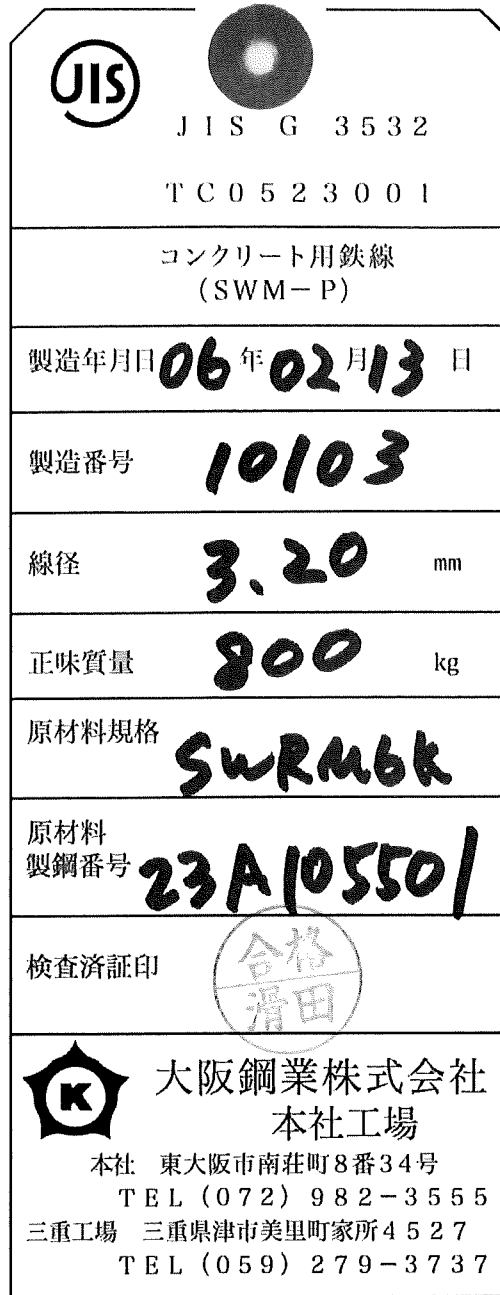 JIS
JIS G 3532
TC0523001
コンクリート用鉄線
(SWM－P)
製造年月日 06 年 02 月 13 日
製造番号 10103
線径 3.20 mm
正味質量 800 kg
原材料規格 SWRM6K
原材料
製鋼番号 23A105501
検査済証印
合格
滑田
K
大阪鋼業株式会社
本社工場
本社 東大阪市南荘町8番34号
TEL (072) 982-3555
三重工場 三重県津市美里町家所4527
TEL (059) 279-3737